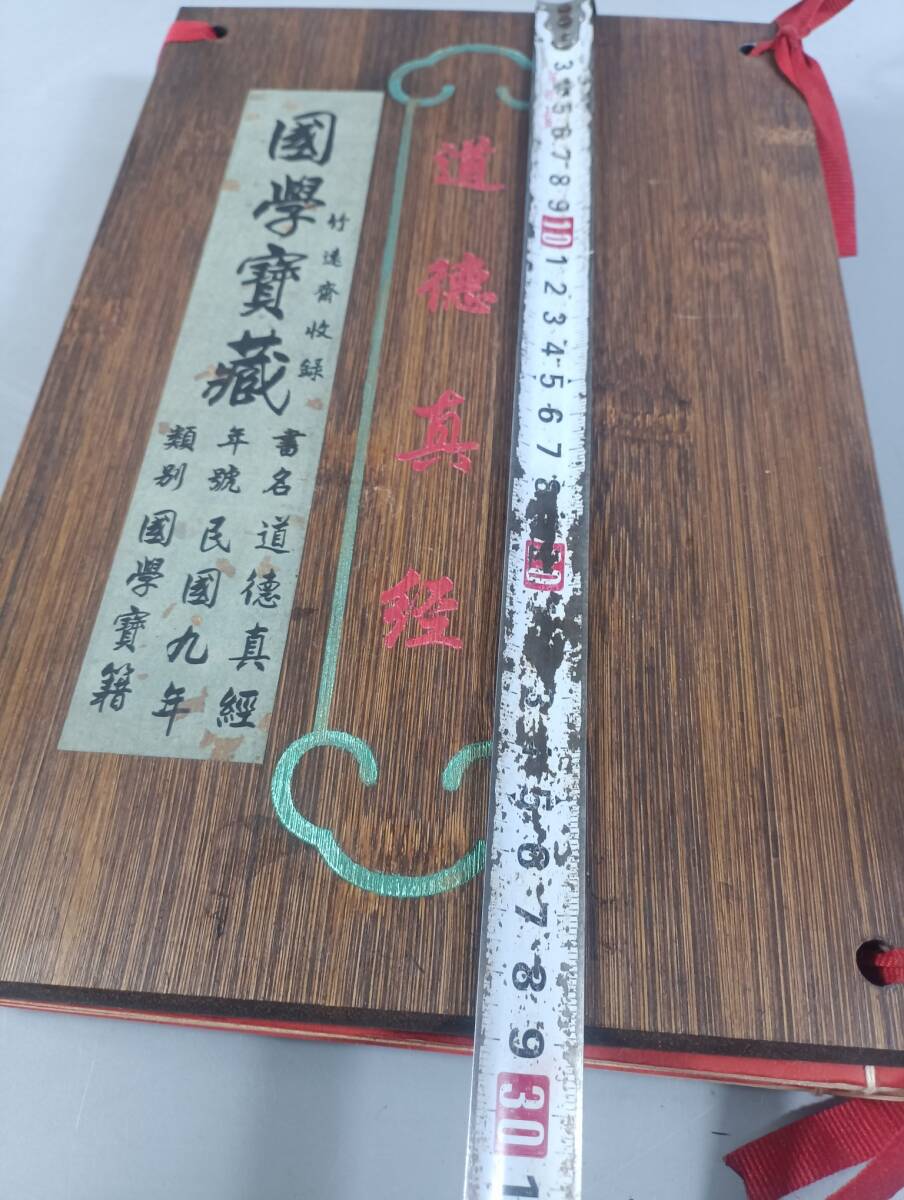 道德真经
國學寶藏
竹遠齋收録
書名 道德真經
年號 民國九年
類別 國學寶籍
3
5
6
7
8
9
10
1
2
3
4
5
6
7
8
3
5
6
7
8
9
30
1